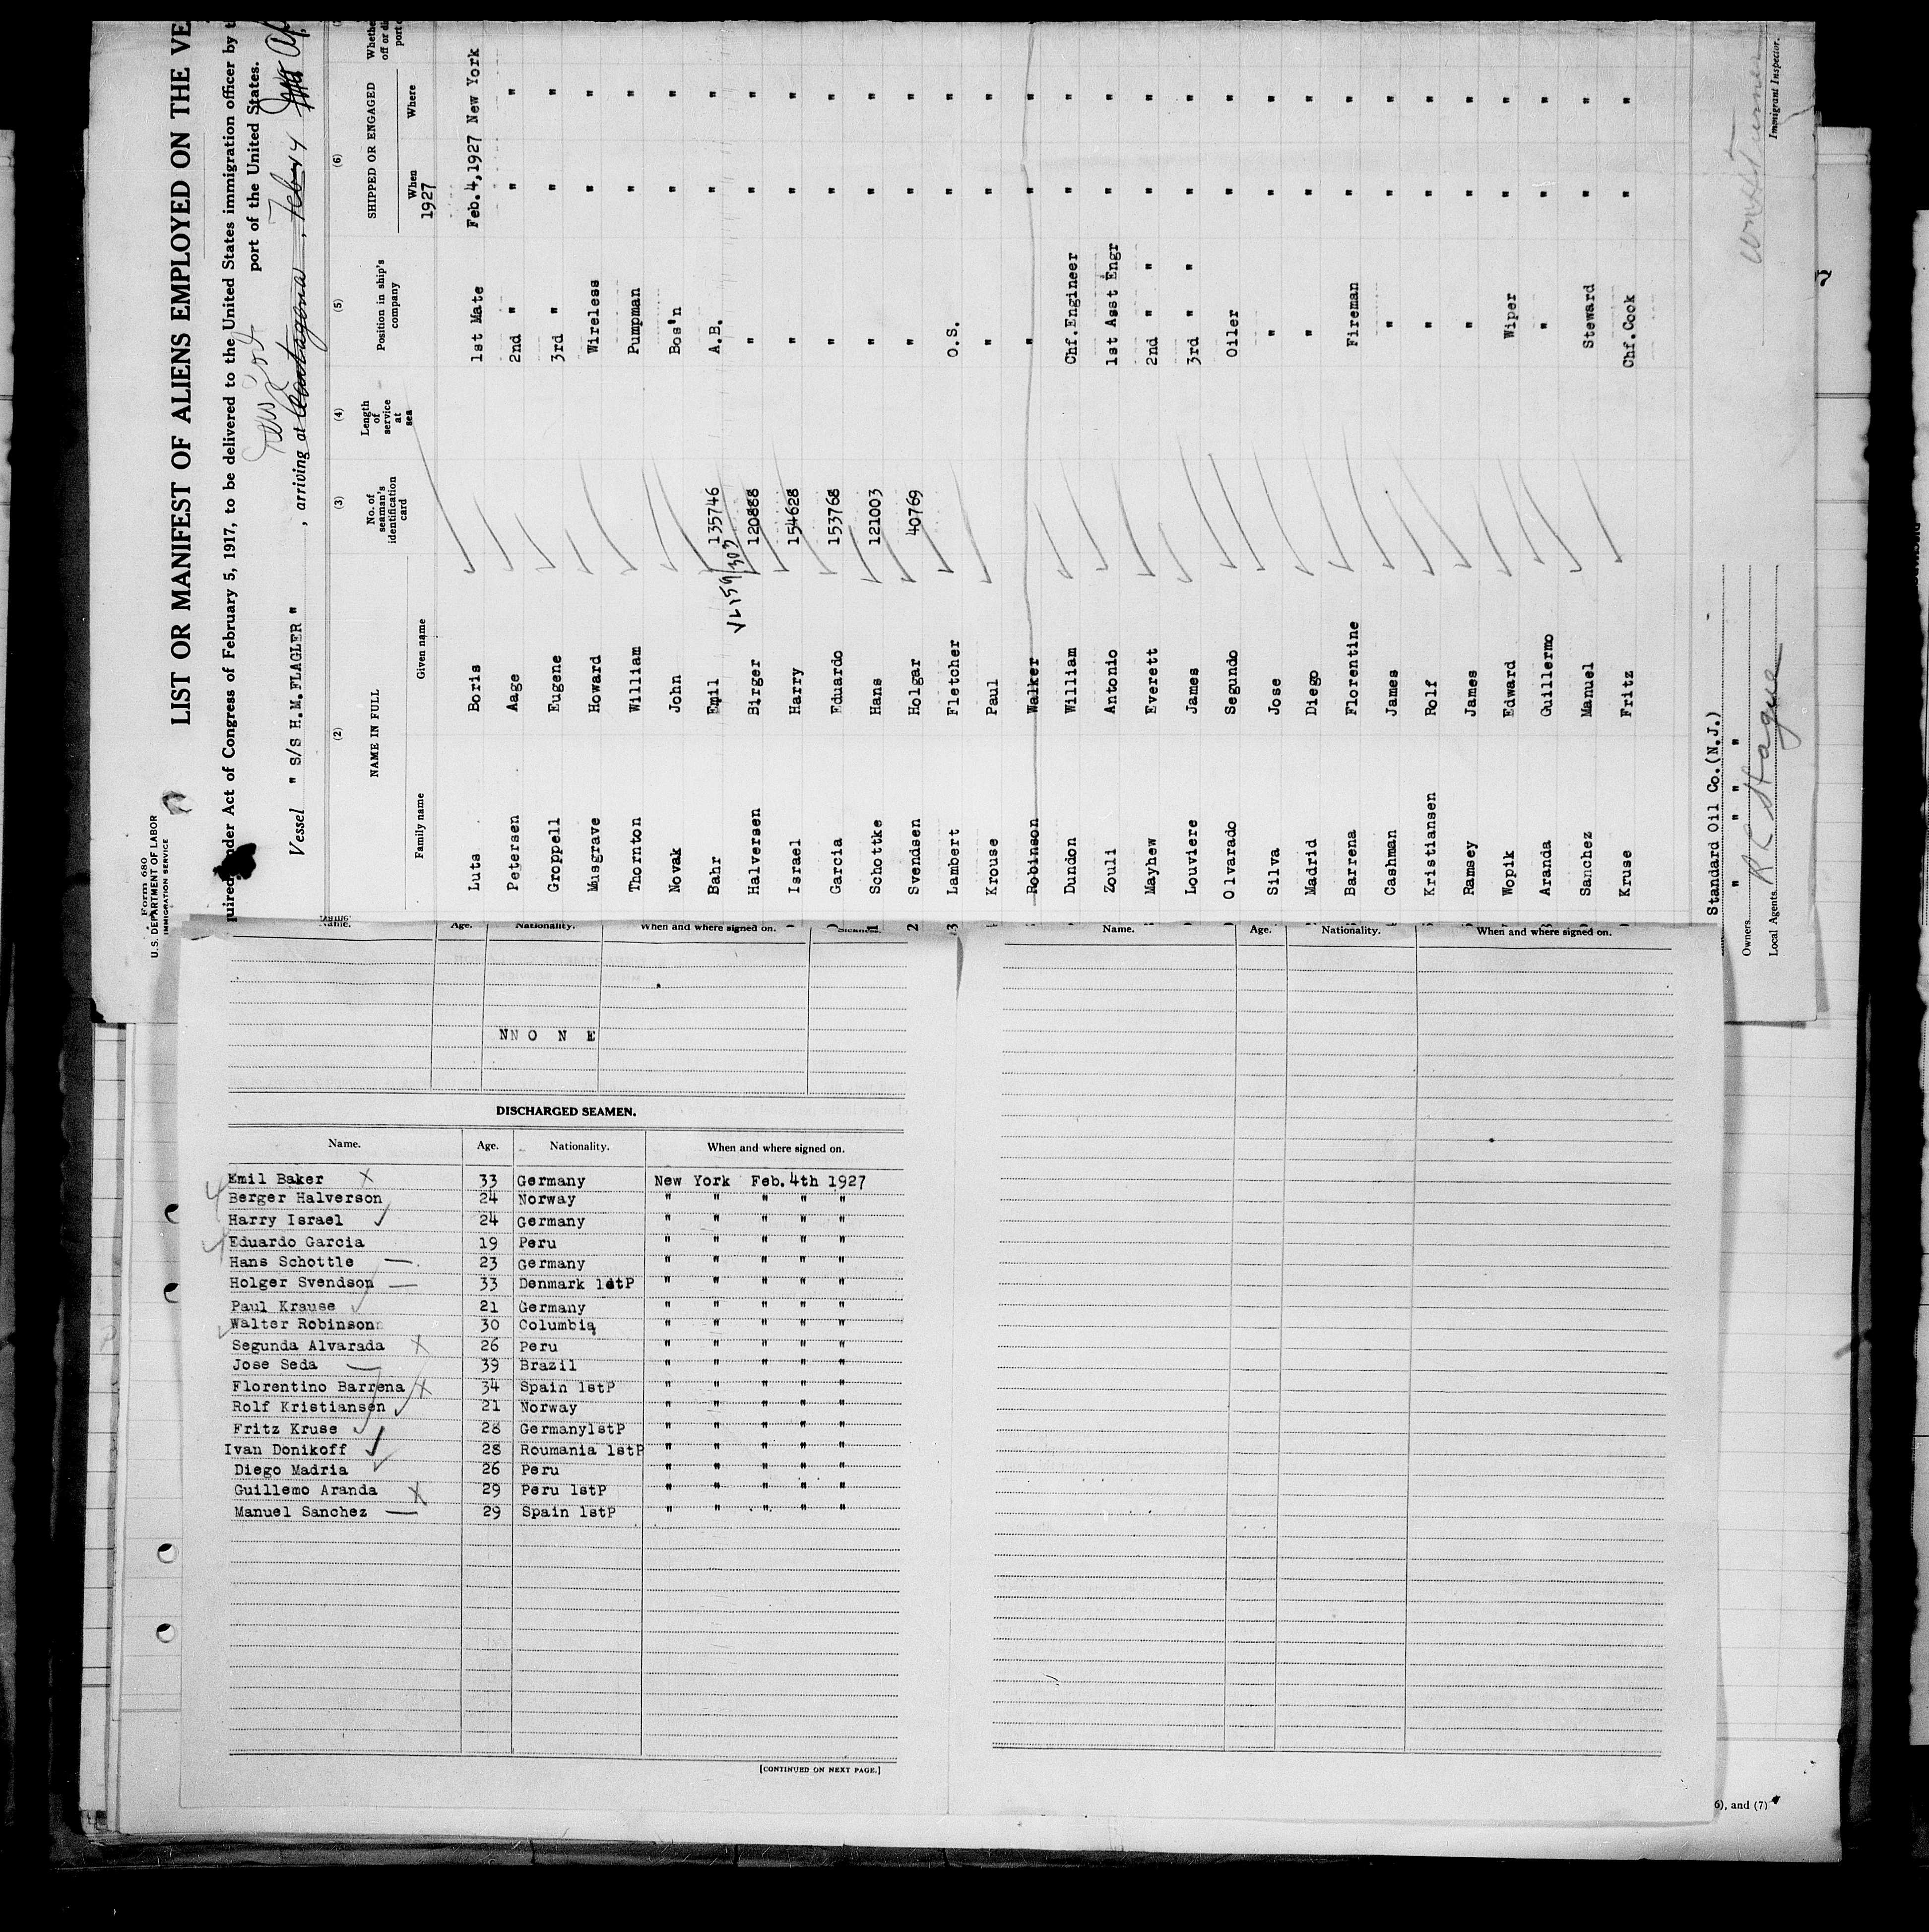 Form 680
U.S. DEPARTMENT OF LABOR
IMMIGRATION SERVICE
LIST OR MANIFEST OF ALIENS EMPLOYED ON THE VE
quired under Act of Congress of February 5, 1917, to be delivered to the United States immigration officer by t
port of the United States.
New York
Vessel " S/S H.M.FLAGLER " , arriving at Cartagena,
(2) (3) (4) (5) (6)
NAME IN FULL No. of seaman's identification card Length of service at sea Position in ship's company SHIPPED OR ENGAGED
Family name Given name When Where
1927
Luts Boris 1st Mate Feb.4,1927 New York
Petersen Aage 2nd " " "
Groppell Eugene 3rd " " "
Musgrave Howard Wireless " "
Thornton William Pumpman " "
Novak John Bos'n " "
Bahr Emil 135746 A.B. " "
Halversen Birger 120888 " " "
Israel Harry 154628 " " "
Garcia Eduardo 153768 " " "
Schottke Hans 121003 " " "
Svendsen Holgar 40769 " " "
Lambert Fletcher O.S. " "
Krouse Paul " " "
Robinson Walker " " "
Dundon William Chf.Engineer " "
Zouli Antonio 1st Asst Engr " "
Mayhew Everett 2nd " " " "
Louviere James 3rd " " " "
Olvarado Segundo Oiler " "
Silva Jose " " "
Madrid Diego " " "
Barrena Florentine Fireman " "
Cashman James " " "
Kristiansen Rolf " " "
Ramsey James " " "
Wopik Edward Wiper " "
Aranda Guillermo " " "
Sanchez Manuel Steward " "
Kruse Fritz Chf.Cook " "
Standard Oil Co.(N.J.)
Owners " " " "
Local Agents R C Hague
Immigrant Inspector.
Name. Age. Nationality. When and where signed on.
NN O N E
DISCHARGED SEAMEN.
Name. Age. Nationality. When and where signed on.
Emil Baker X 33 Germany New York Feb.4th 1927
Berger Halverson 24 Norway " " " " "
Harry Israel 24 Germany " " " " "
Eduardo Garcia 19 Peru " " " " "
Hans Schottle 23 Germany " " " " "
Holger Svendson 33 Denmark 1stP " " " " "
Paul Krause 21 Germany " " " " "
Walter Robinson 30 Columbia " " " " "
Segunda Alvarada X 26 Peru " " " " "
Jose Seda 39 Brazil " " " " "
Florentino Barrena X 34 Spain 1stP " " " " "
Rolf Kristiansen 21 Norway " " " " "
Fritz Kruse 28 Germany1stP " " " " "
Ivan Donikoff 28 Roumania 1stP " " " " "
Diego Madria 26 Peru " " " " "
Guillemo Aranda X 29 Peru 1stP " " " " "
Manuel Sanchez 29 Spain 1stP " " " " "
[CONTINUED ON NEXT PAGE.]
Name. Age. Nationality. When and where signed on.
6), and (7)